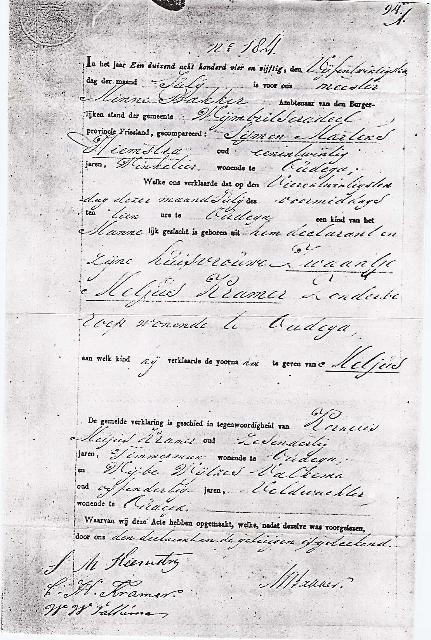 No 184.
In het jaar Een duizend acht honderd vier en vijftig, den Vijfentwintigsten
dag der maand July is voor ons meester
Minne Bakker Ambtenaar van den Burger-
lijken stand der gemeente Wymbritseradeel
provincie Friesland, gecompareerd: Symen Martens
Hiemstra oud eenentwintig
jaren, Winkelier wonende te Oudega,
Welke ons verklaarde dat op den Vierentwintigsten
dag dezer maand July des voormiddags
ten tien ure te Oudega een kind van het
Manne lijk geslacht is geboren uit hem declarant en
zijne huisvrouwe Zwaantje
Meljus Kramer zonder be
roep wonende te Oudega,
aan welk kind hij verklaarde de voorna am te geven van Meljus
De gemelde verklaring is geschied in tegenwoordigheid van Kornelis
Meljus Kramer oud zesendertig
jaren, Timmerman wonende te Oudega,
en Wybe Valkema
oud jaren, Veldwachter
wonende te
Waarvan wij deze Acte hebben opgemaakt, welke, nadat dezelve was voorgelezen,
door ons den declarant en de getuigen is geteekend.
S M Hiemstra
K. M. Kramer.
W. W. Valkema
MBakker.